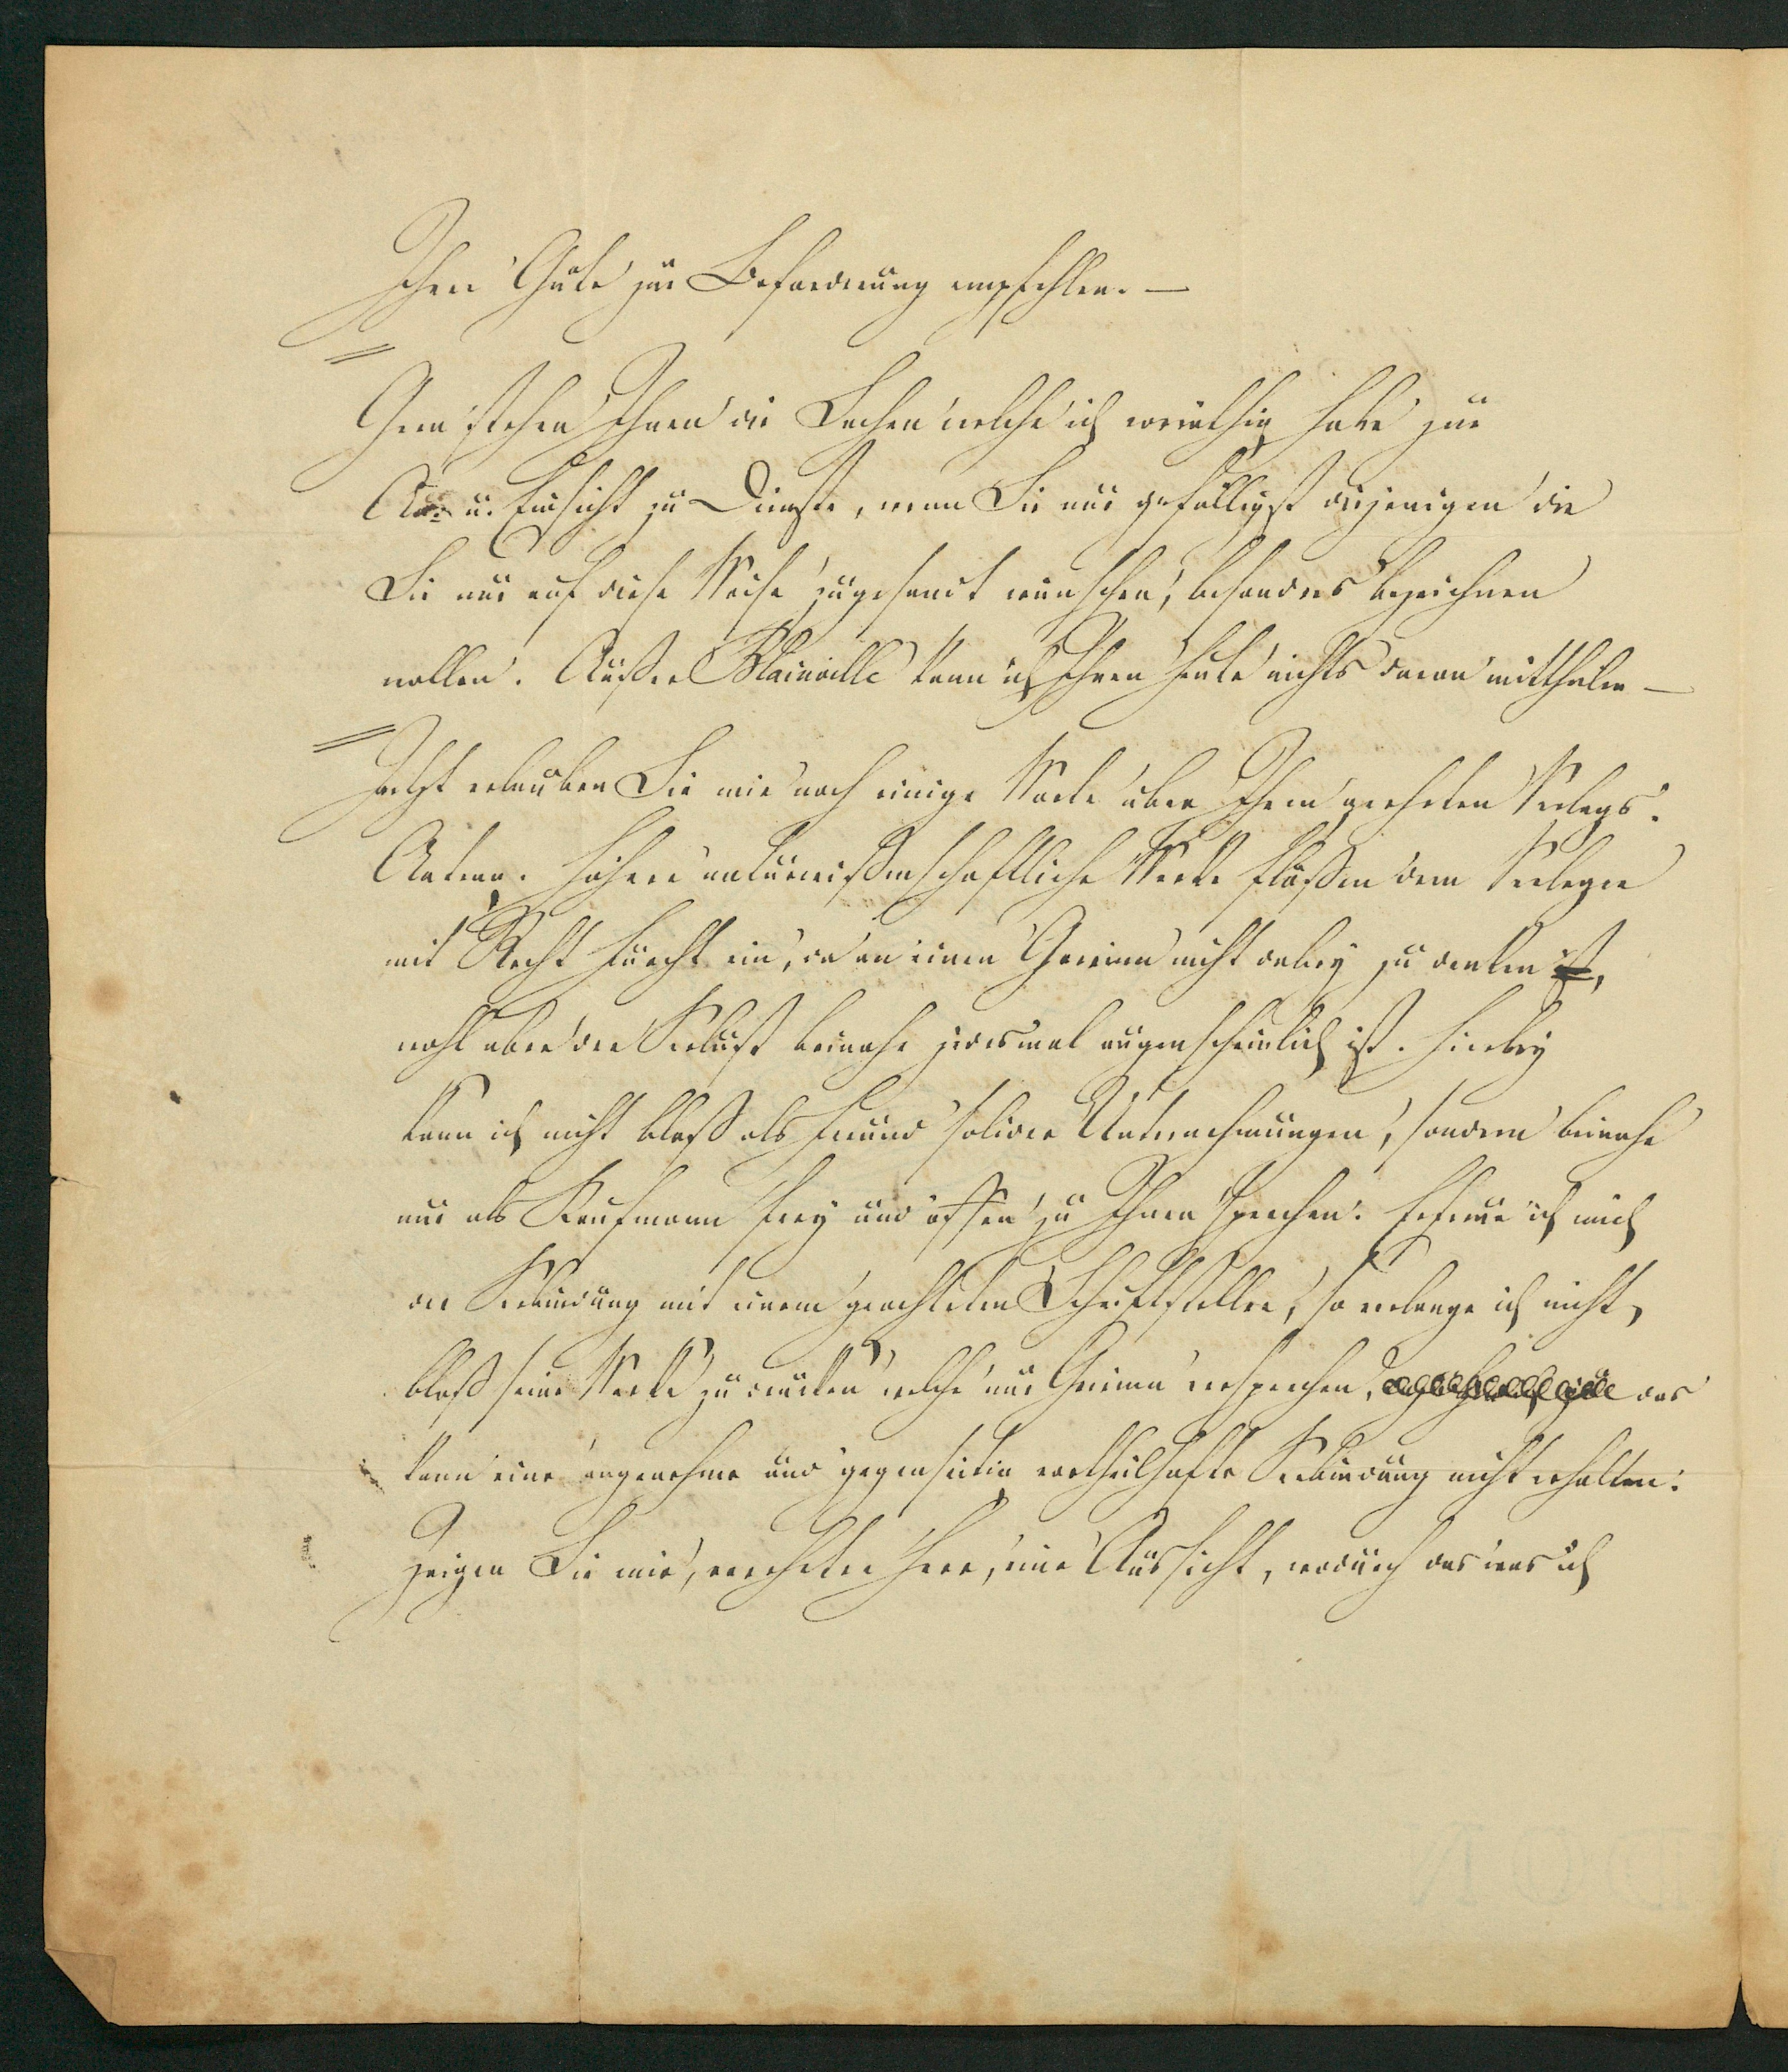 Ihrer Güte zur Beförderung empfehlen. —
Gern stehen Ihnen die Sachen welche ich vorräthig habe zur
An- u. Einsicht zu Dienste, wenn Sie nur gefälligst diejenigen die
Sie nur auf diese Weise zugesandt wünschen, besonders bezeichnen
wollen. Außer Blainville kann ich Ihnen heute nichts davon mittheilen —
Jetzt erlauben Sie mir noch einige Worte über Ihren geehrten Verlags-
Antrag. Höhere naturwissenschaftliche Werke flößen dem Verleger
mit Recht Furcht ein, da an einen Gewinn nicht dabey zu denken ist,
wohl aber der Verlust beinahe jedesmal augenscheinlich ist. Hierbey
kann ich nicht bloß als Freund solider Unternehmungen, sondern beinahe
nur als Kaufmann frey und offen zu Ihnen sprechen. Erfreue ich mich
der Verbindung mit einem geachteten Schriftsteller, so verlange ich nicht,
bloß seine Werke zu drucken welche nur Gewinn versprechen, das
kann eine angenehme und gegenseitig vortheilhafte Verbindung nicht erhalten.
Zeigen Sie mir, verehrter Herr, eine Aussicht, wodurch das was ich